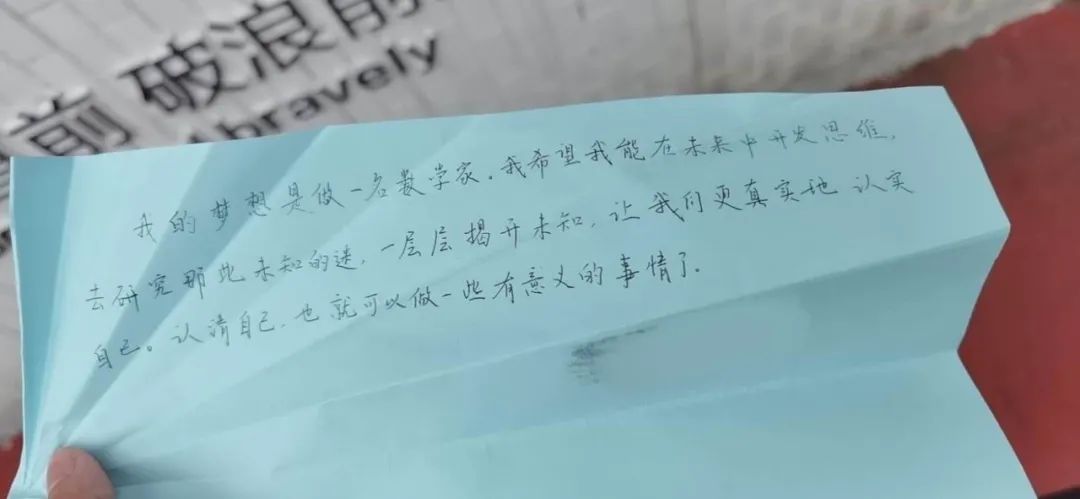 前 破浪前
bravely
我的梦想是做一名数学家。我希望我能在未来中开发思维,
去研究那些未知的迷,一层层揭开未知,让我们更真实地认实
自己。认清自己,也就可以做一些有意义的事情了.